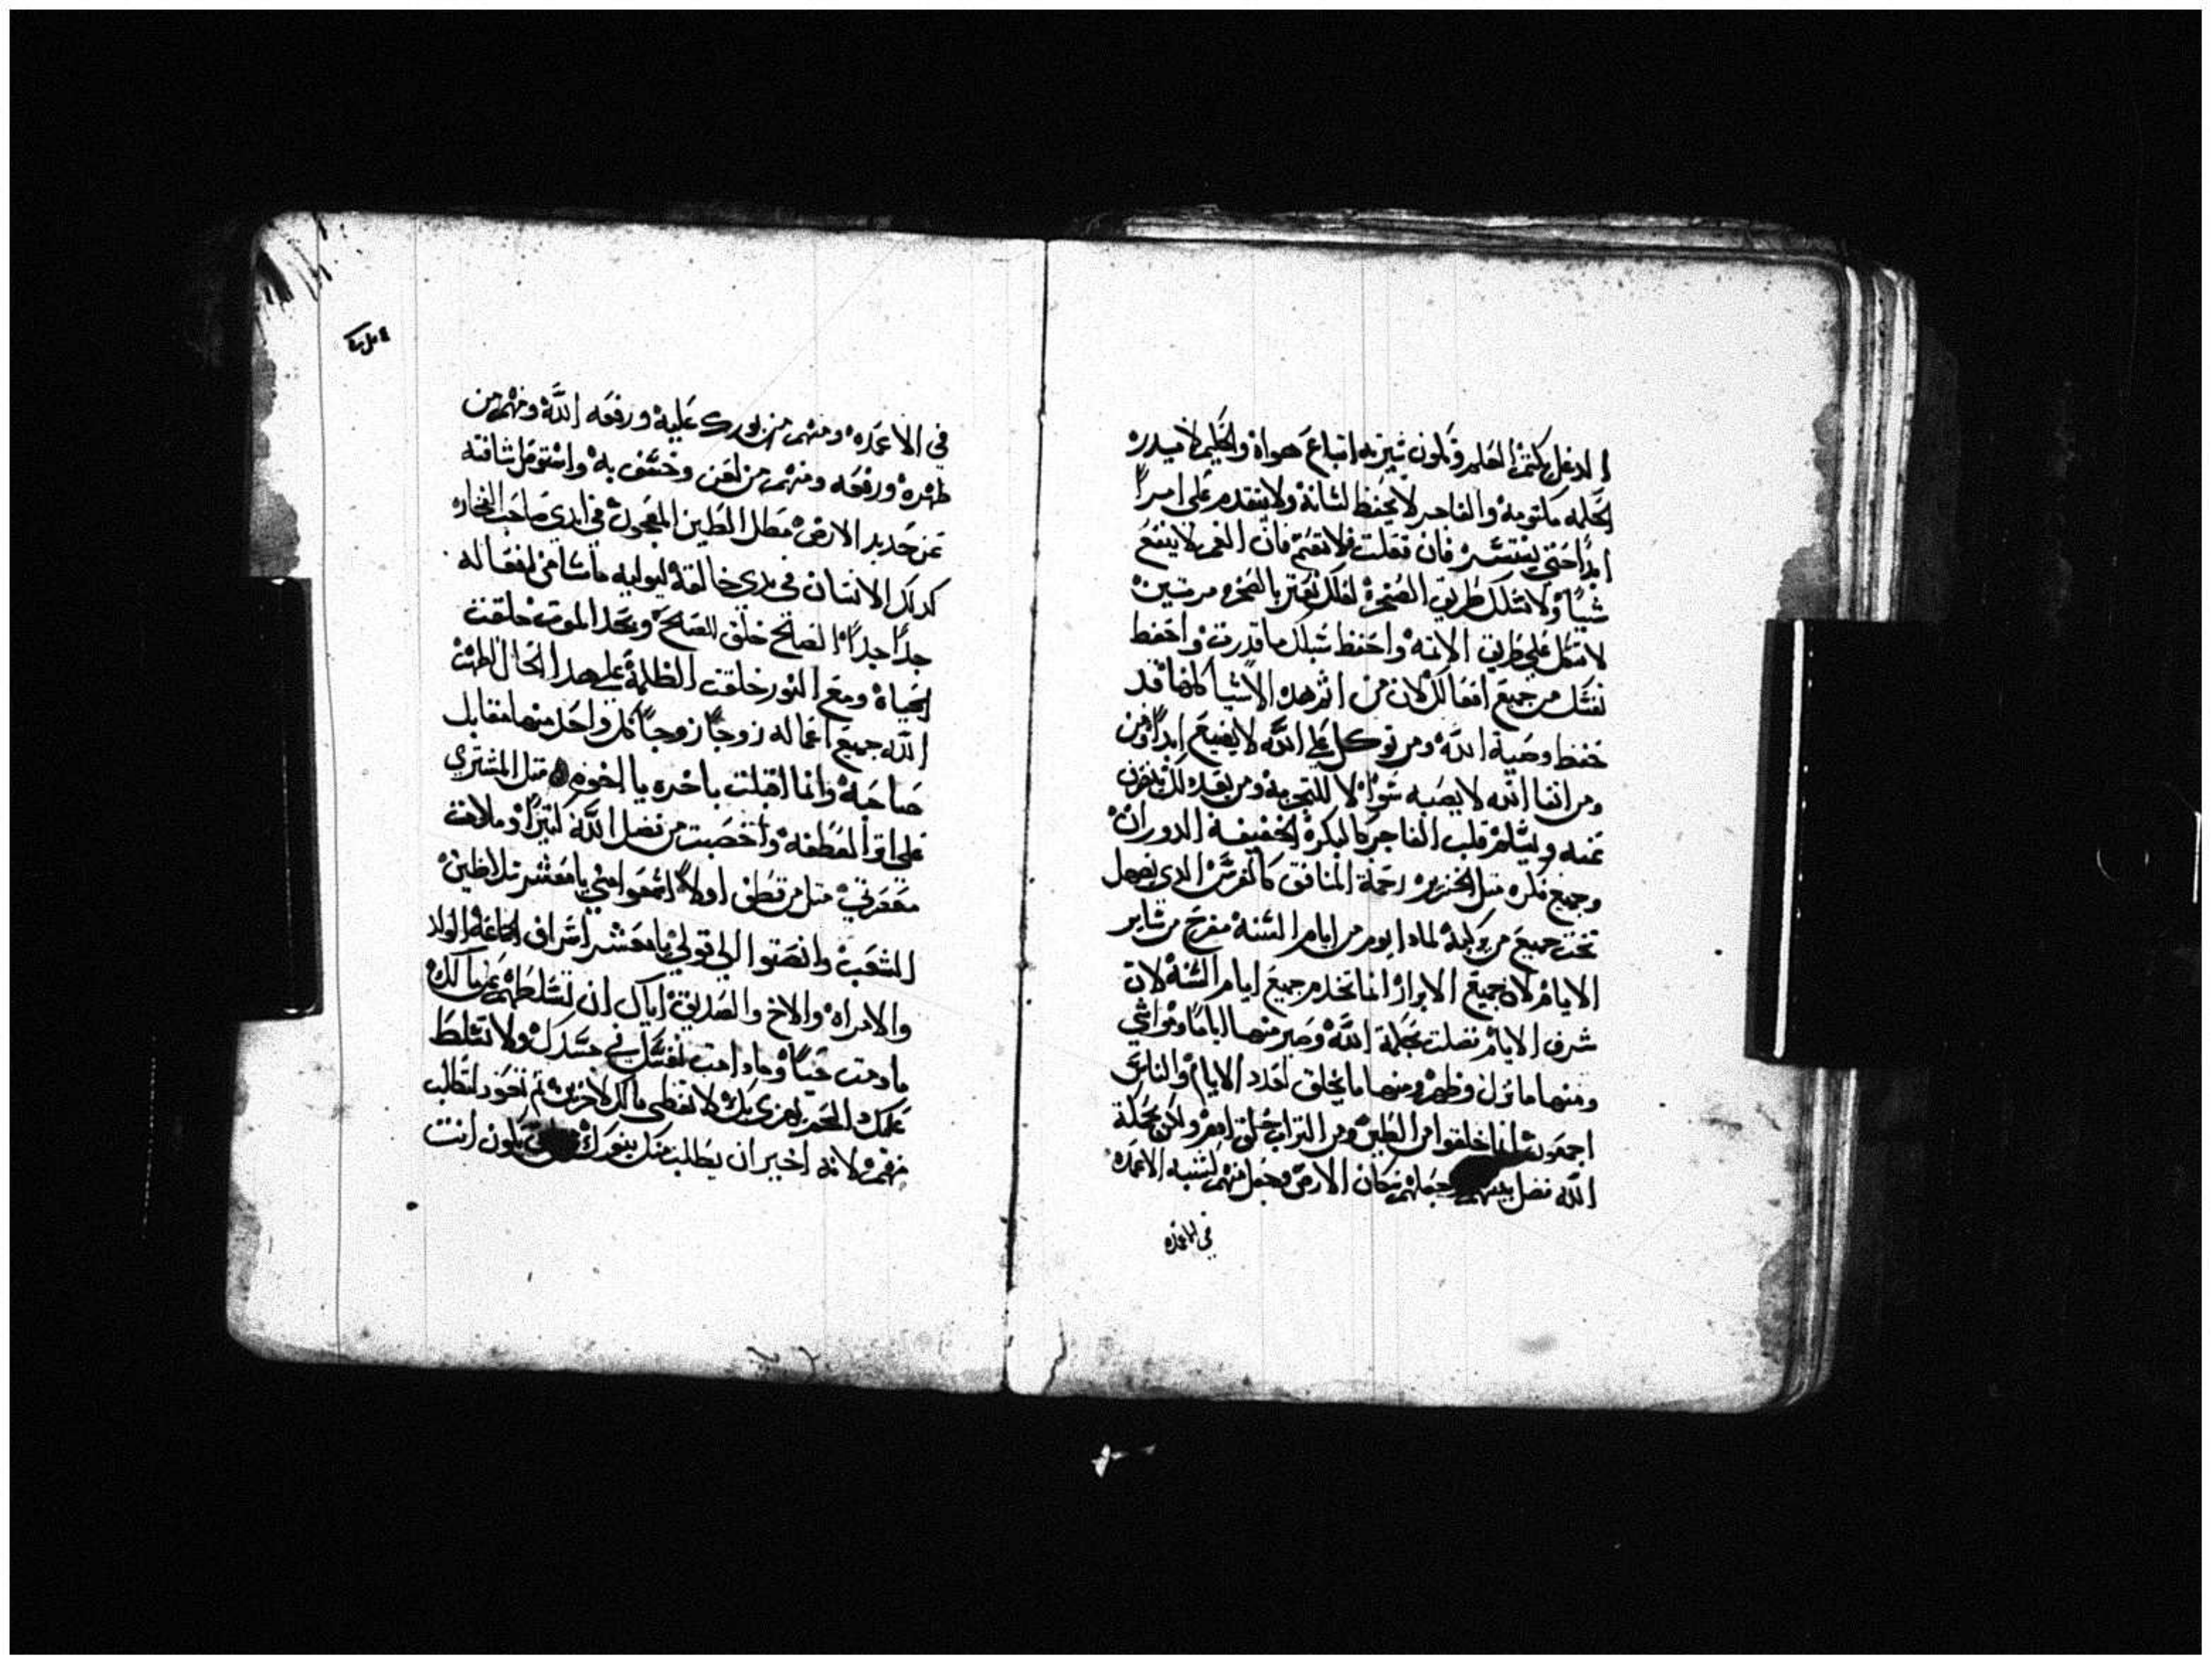 الدغل يكتم العلم ويكون ثيرته اتباع هواه والحكيم لا يبدره
الحكمه مكتومه والفاجر لا يحفظ لسانه ولا يتقدم على امراً
ابداً حتى يستسير فان فعلت فلا تغتم فان الغم لا ينفع
شياً ولا تسلك طريق الصخره لعلك تعتر بالصخره مرتين
لا تتكل على طريق الاتمه واحفظ سبلك ما قدرت واحفظ
نفسك من جميع افعالك لان من اثم هده الاشيا كلها فقد
حفظ وصية الله ومن توكل على الله لا يضيع ابداً ومن
ومن اتقا الله لا يصبه سوا الا للتجربه ومن بعد دلك
عنه ويسلم قلب الفاجر كالبكره الخفيفة الدوران
وجميع فكره متل الخنزيره رحمة المنافق كالفرس الدي يصهل
تحت جميع من يركبه لمادا يوم من ايام السنه مفرح من ساير
الايام لان جميع الابرار انما تخدم جميع ايام السنه لان
شرف الايام فضلت بحكمة الله وصير منها اياماً ومواشي
ومنها ما نزل وطهر ومنها ما يخلق لعدد الايام والناس
اجمعون انما خلقوا من الطين ومن التراب خلق ادم ولكن بحكمة
الله فضل بينهم وجعلهم سكان الارض وجعل منهم لتشبه الاعمده
في الاعمده
في الاعمده ومنهم من بورك عليه ورفعه الله ومنهم من
طهره ورفعه ومنهم من لعن وخسف به واستوصل شافته
عن جديد الارض متل الطين المعجون في ايدي صاحب الفخاره
كدلك الانسان في يدي خالقه ليوليه ماشا من افعاله
جداً جداً الصالح خلق للصلح وبحد الموت خلقت
الحياه ومع النور خلقت الظلمة على هدا الحال اظهرت
الله جميع اعماله زوجاً زوجاً كل واحد منها مقابل
صاحبه وانما اقبلت باخره يا اخوه متل المشتري
على اتر القطفه واخصبت من فضل الله كتيراً وملات
معصرتي متل من قطف اولاً اسمعوا مني يا معشر سلاطين
الشعب وانصتوا الى قولي يا معشر اشراف الجماعه والولاد
والامراه والاخ والصديق اياك ان تسلطهم على مالك
ما دمت حياً وما دامت نفسك في جسدك ولا تسلط
عليك لا تعطي مالك لاخرين ثم تعود لتطلب
منهم لانه اخير ان يطلب منك بنوك يكون انت